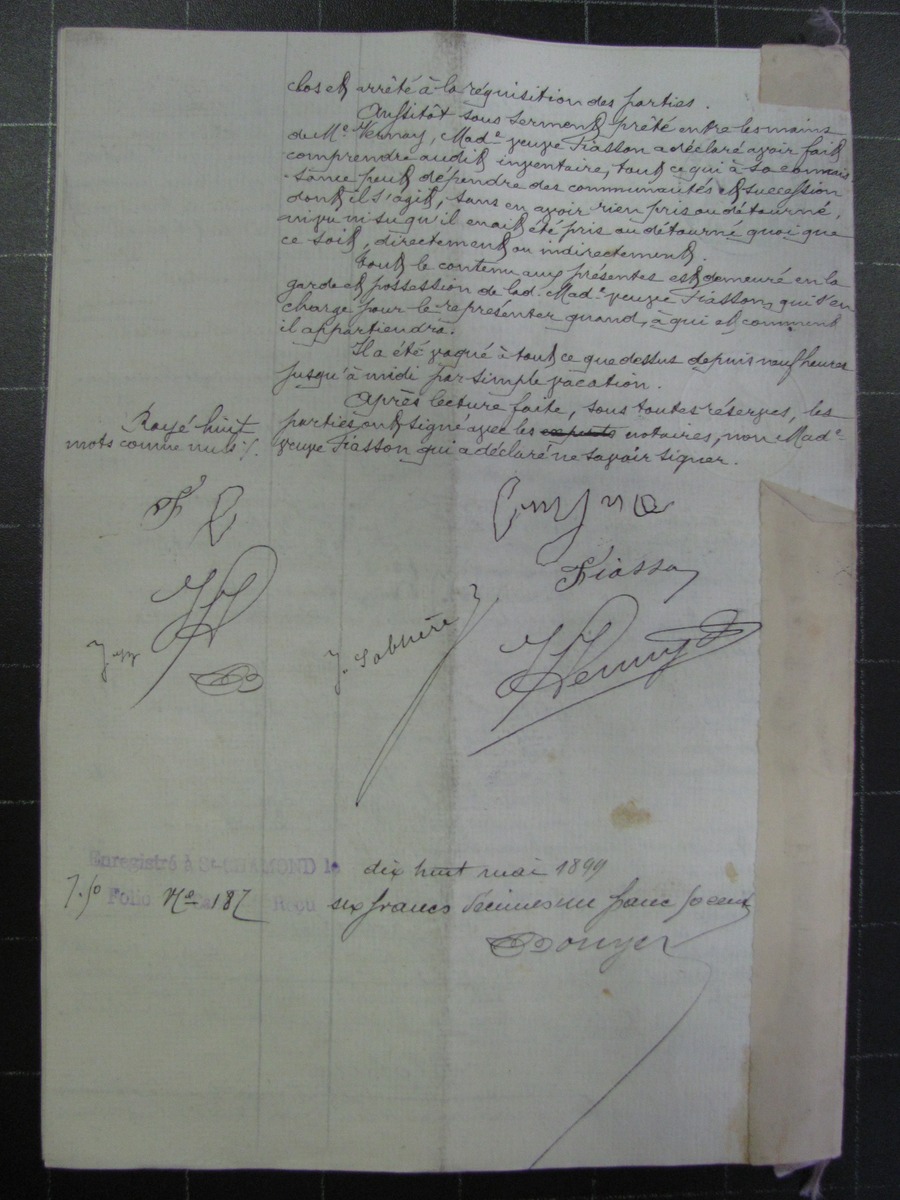 clos et arrêté à la réquisition des parties.
Aussitôt sous serment prêté entre les mains
de Me Vernay, Made veuve Fiasson a déclaré avoir fait
comprendre audit inventaire, tout ce qui à sa connais
sance peut dépendre des communautés et succession
dont il s'agit, sans en avoir rien pris ou détourné,
ni vu ni su qu'il en ait été pris ou détourné quoi que
ce soit, directement ou indirectement.
Tout le contenu aux présentes est demeuré en la
garde et possession de lad. Made veuve Fiasson, qui s'en
charge pour le représenter quand, à qui et comment
il appartiendra.
Il a été vaqué à tout ce que dessus depuis neuf heures
jusqu'à midi par simple vacation.
Après lecture faite, sous toutes réserves, les
parties ont signé avec les notaires, non Made
veuve Fiasson qui a déclaré ne savoir signer.
Rayé huit
mots comme nuls
Fiasson
Enregistré à St-CHAMOND le dix huit mai 1899
7.50 Folio No 187 Reçu six francs décimes un franc 50 cent
Bouyer